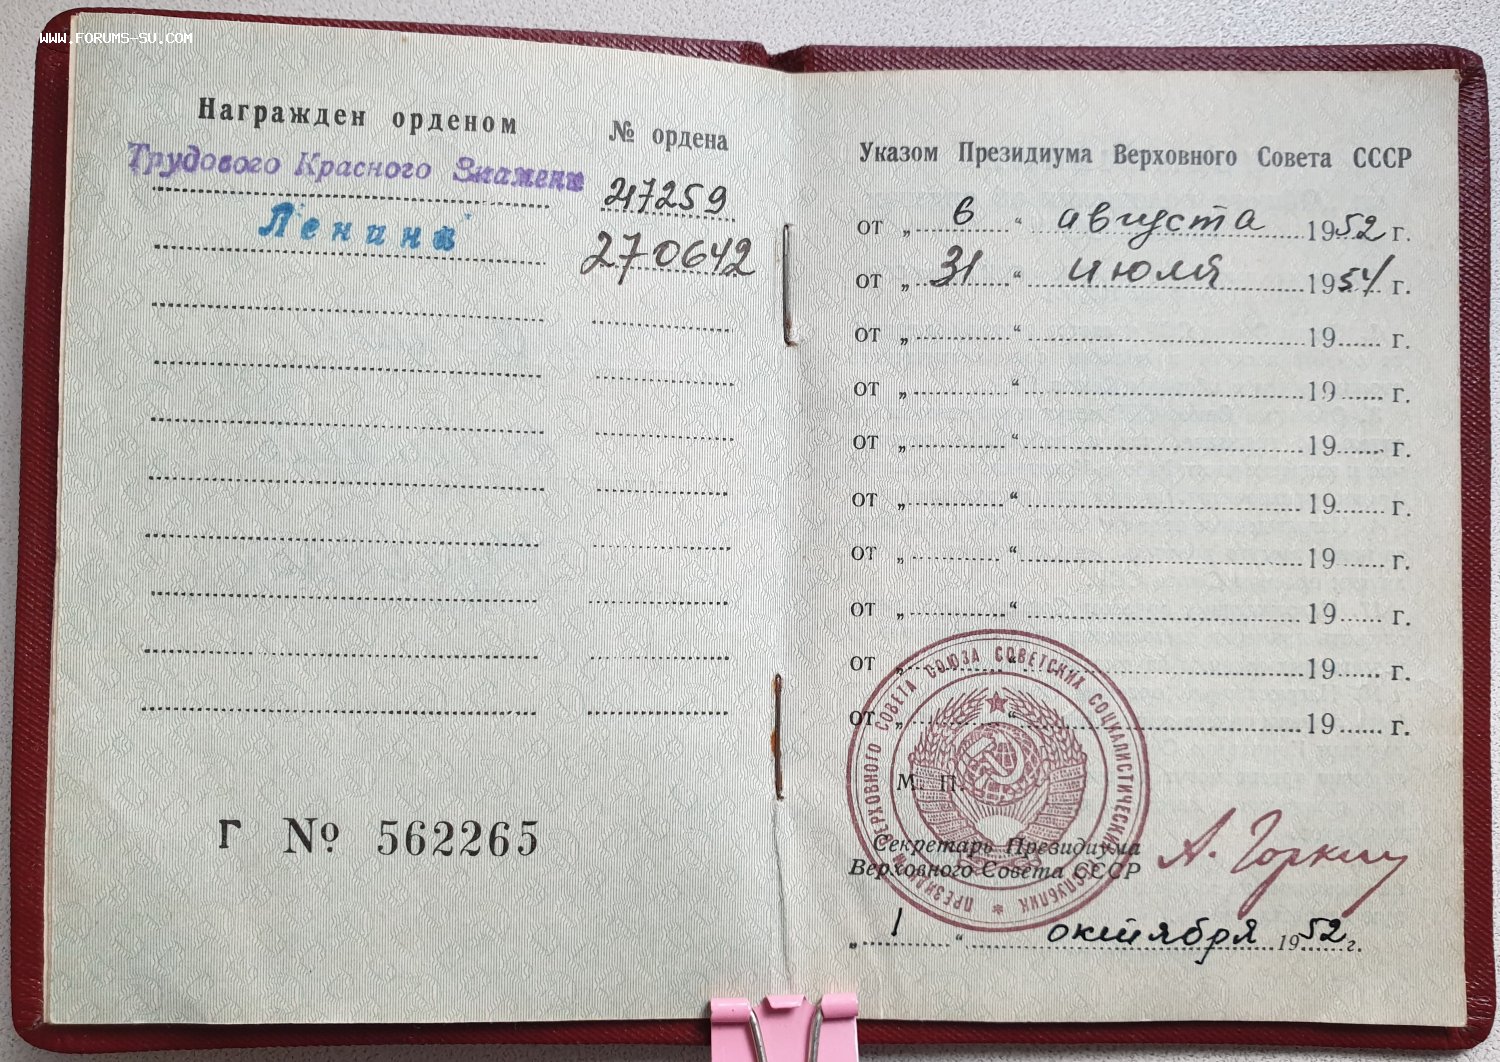 www.FORUMS-SU.COM
Награжден орденом № ордена
Трудового Красного Знамени 217259
Ленина 270642
Г № 562265
Указом Президиума Верховного Совета СССР
от „ 6 “ августа 1952 г.
от „ 31 “ июля 1954 г.
от „ “ 19 г.
от „ “ 19 г.
от „ “ 19 г.
от „ “ 19 г.
от „ “ 19 г.
от „ “ 19 г.
от „ “ 19 г.
от „ “ 19 г.
ПРЕЗИДИУМ ВЕРХОВНОГО СОВЕТА СОЮЗА СОВЕТСКИХ СОЦИАЛИСТИЧЕСКИХ РЕСПУБЛИК
М. П.
Секретарь Президиума
Верховного Совета СССР А. Горкин
„ 1 “ октября 1952 г.